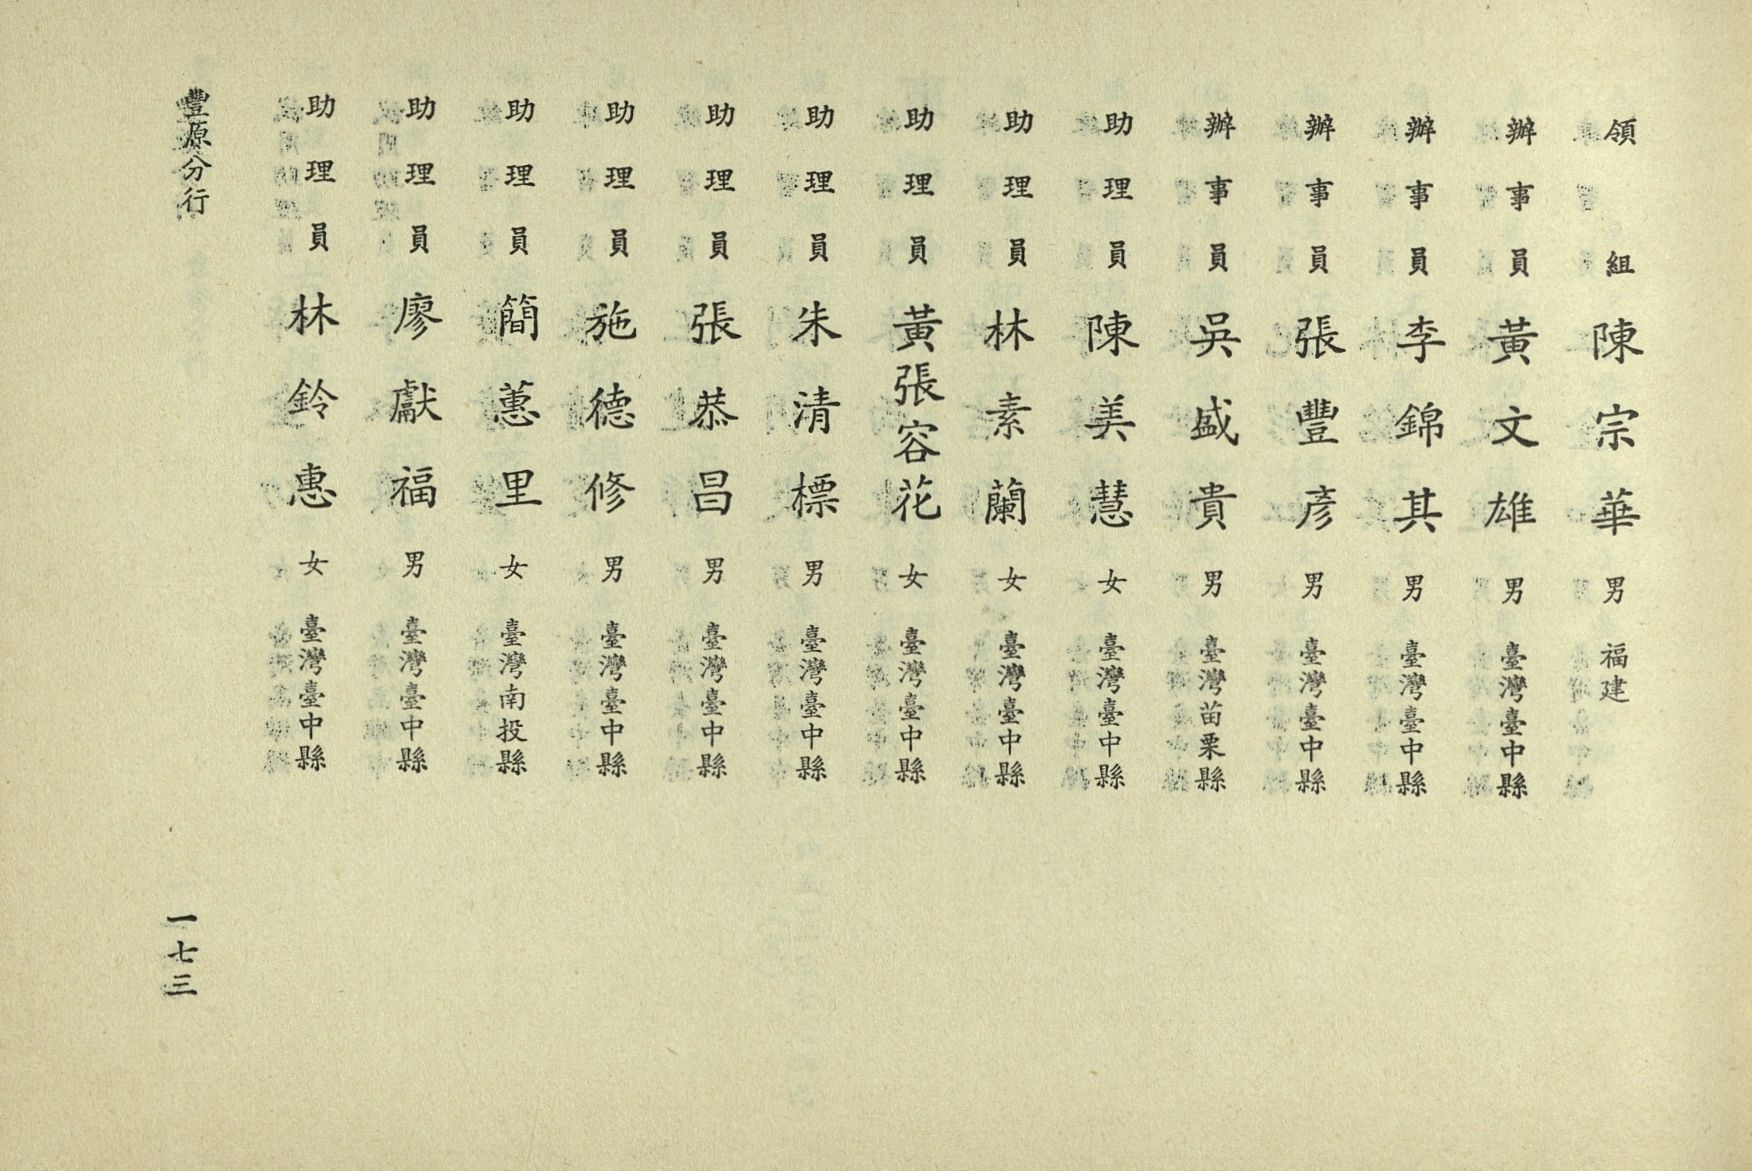 領組陳宗華男福建
辦事員黃文雄男臺灣臺中縣
辦事員李錦其男臺灣臺中縣
辦事員張豐彥男臺灣臺中縣
辦事員吳盛貴男臺灣苗栗縣
助理員陳美慧女臺灣臺中縣
助理員林素蘭女臺灣臺中縣
助理員黃張容花女臺灣臺中縣
助理員朱清標男臺灣臺中縣
助理員張恭昌男臺灣臺中縣
助理員施德修男臺灣臺中縣
助理員簡蕙里女臺灣南投縣
助理員廖獻福男臺灣臺中縣
助理員林鈴惠女臺灣臺中縣
豐原分行
一七三